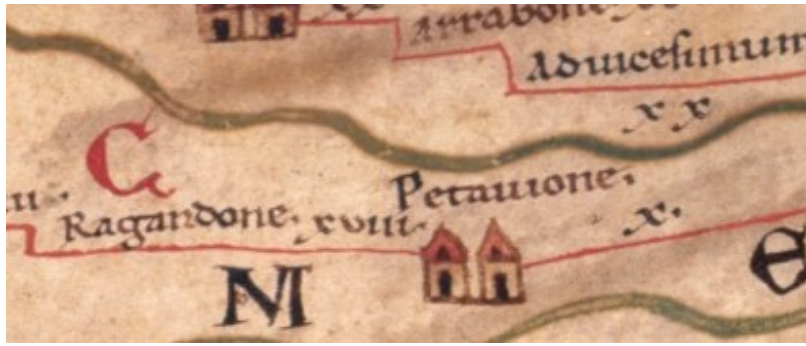 xx
Arrabone
Advicesimum
xx
C
Petavione.
Ragandone. xviii.
x.
N
e